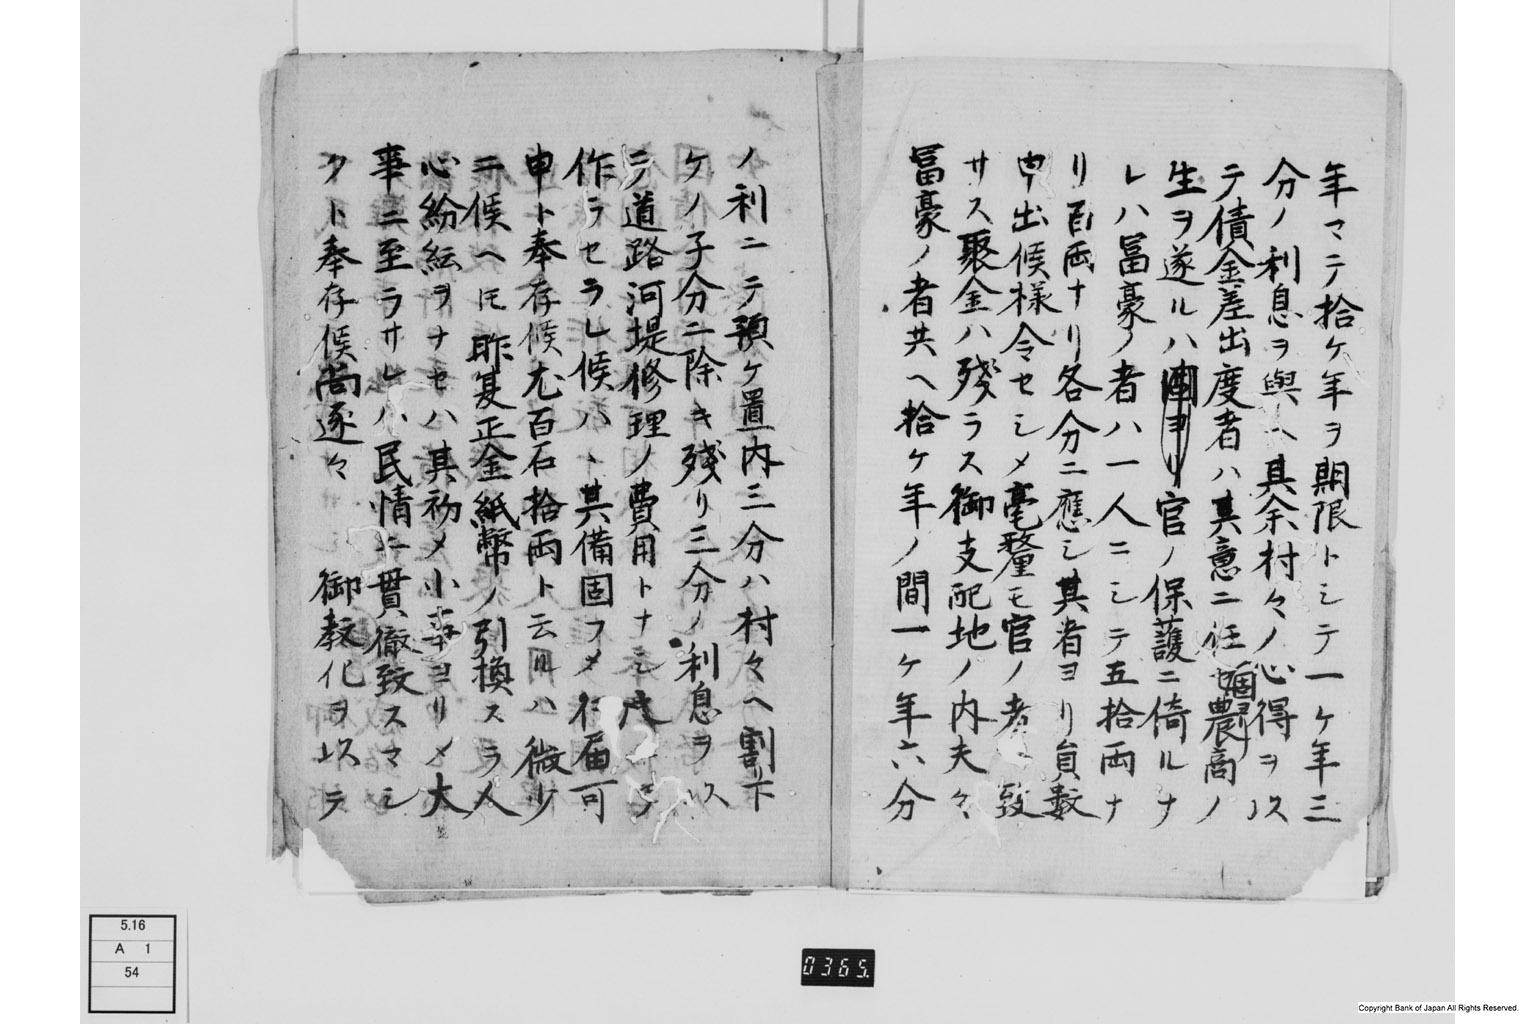 年マテ拾ケ年ヲ期限トシテ一ケ年三
分ノ利息ヲ與ヘ其余村々ノ心得ヲ以
テ債金差出度者ハ其意ニ任セ農商ノ
生ヲ遂ルハ官ノ保護ニ倚ルナ
レハ冨豪ノ者ハ一人ニシテ五拾両ナ
リ百両ナリ各分ニ應シ其者ヨリ員数
申出候様令セシメ毫釐モ官ノ者ニ致
サス聚金ハ残ラス御支配地ノ内夫々
冨豪ノ者共ヘ拾ケ年ノ間一ケ年六分
ノ利ニテ預ケ置内三分ハ村々ヘ割下
ケノ子分ニ除キ残リ三分ノ利息ヲ以
テ道路河堤修理ノ費用トナシ
作ラセラレ候ハヽ其備固フメ行届可
申ト奉存候尤百石拾両ト云ルハ微少
ニ候ヘ𪜈昨夏正金紙幣ノ引換スラ人
心紛紜ヲナセハ其初メ小事ヨリメ大
事ニ至ラサレハ民情ニ貫徹致スマシ
クト奉存候尚逐々 御教化ヲ以テ
5.16
A 1
54
0365.
Copyright Bank of Japan All Rights Reserved.